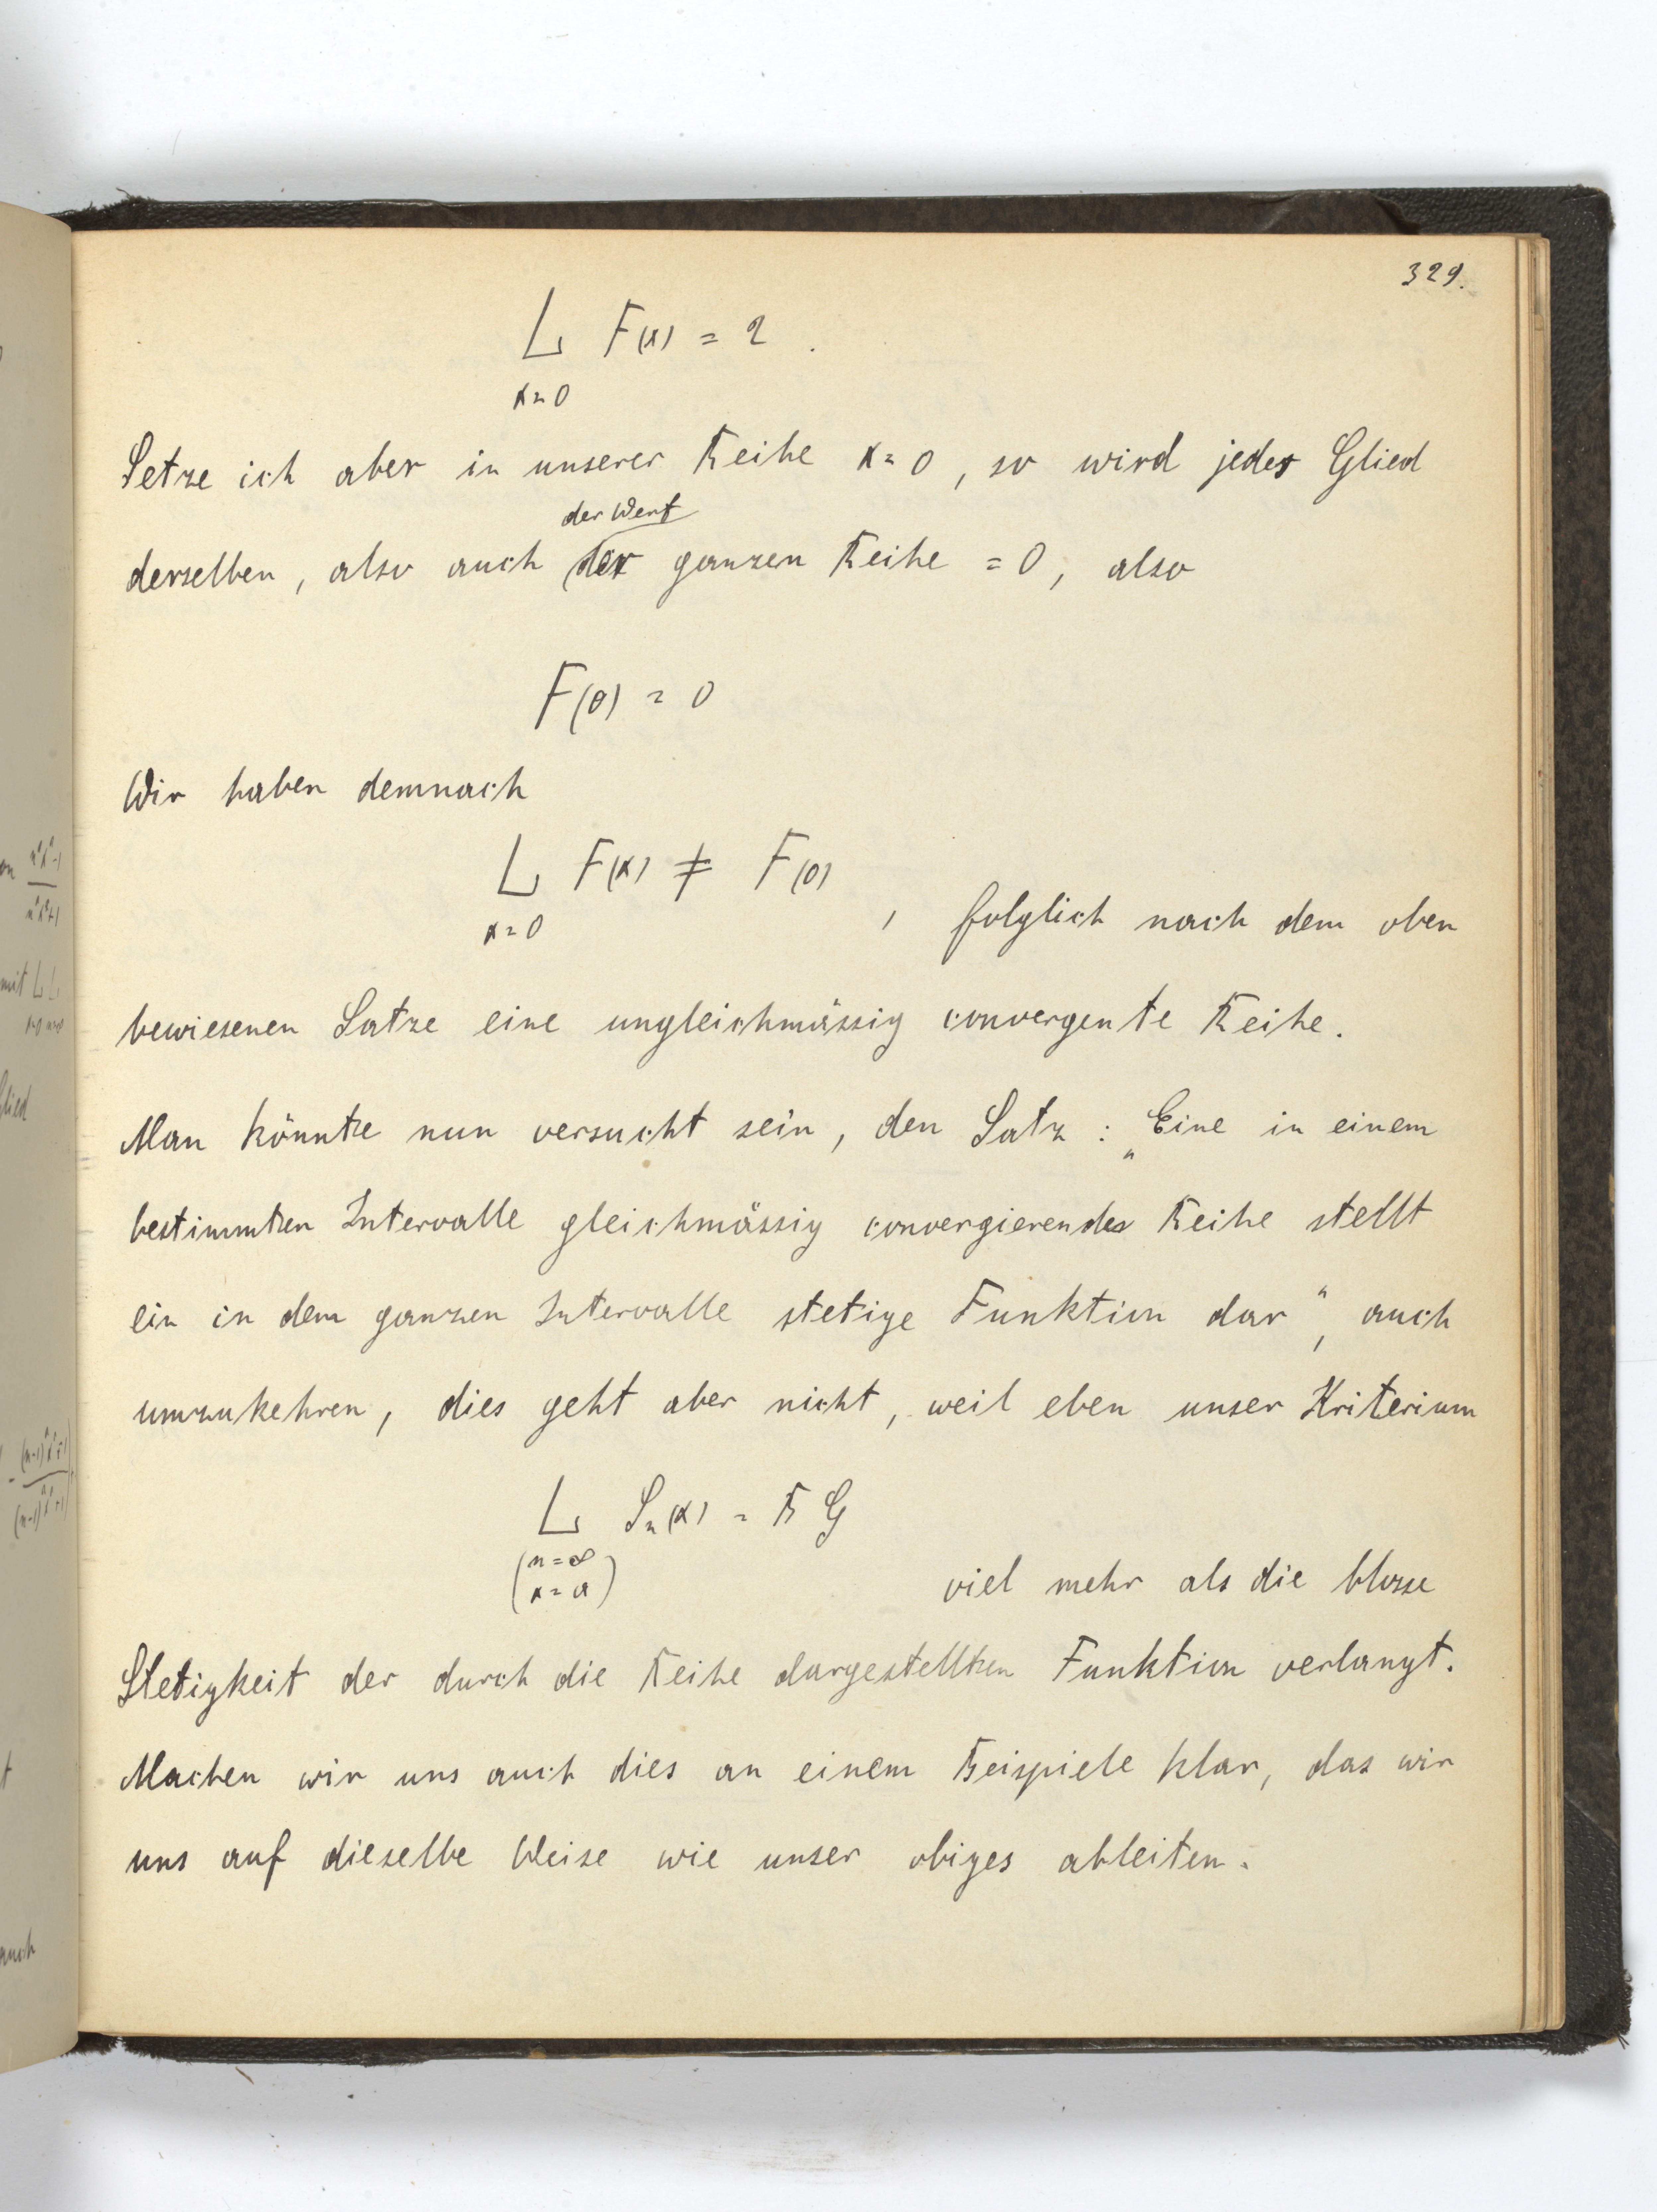 329.
L F(x) = 2 .
x=0
Setze ich aber in unserer Reihe x=0, so wird jedes Glied
der Wert
derselben, also auch der ganzen Reihe = 0, also
F(0) = 0
Wir haben demnach
L F(x) ≠ F(0)
x=0 , folglich nach dem oben
bewiesenen Satze eine ungleichmässig convergente Reihe.
Man könnte nun versucht sein, den Satz: „Eine in einem
bestimmten Intervalle gleichmässig convergierendes Reihe stellt
ein in dem ganzen Intervalle stetige Funktion dar“, auch
umzukehren, dies geht aber nicht, weil eben unser Kriterium
L Sn(x) = B G
(n=∞
x=a) viel mehr als die blosse
Stetigkeit der durch die Reihe dargestellten Funktion verlangt.
Machen wir uns auch dies an einem Beispiele klar, das wir
uns auf dieselbe Weise wie unser obiges ableiten.
on n²x²-1
n²x²+1
mit L L
Glied
- (n-1)²x²-1
(n-1)²x²+1
auch